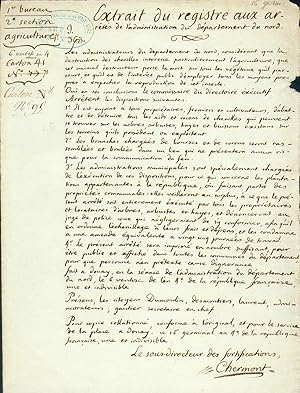 1er bureau
2e section
agriculture
Carton 41
Extrait du registre aux ar-
rêtés de l'administration du département du nord
Les administrateurs du département du nord, considérant que la
destruction des chenilles intéresse particulièrement l'agriculture, que
cet insecte dévorant porte la mort sur tous les végétaux qu'il par-
court, et qu'il est de l'intérêt public d'employer tous les moyens propres
à empêcher la reproduction de cet insecte.
Ouï en ses conclusions le commissaire du directoire exécutif
arrêtent les dispositions suivantes :
1° Il est enjoint à tous propriétaires, fermiers et cultivateurs, d'abat-
tre et de détruire tous les nids et œufs de chenilles qui peuvent
se trouver sur les arbres, arbustes, hayes et buissons existans sur
les terreins qu'ils possèdent ou exploitent.
2° les branches chargées de bourses et de œufs seront ras-
semblées et brûlées dans un lieu qui ne présentera aucun ris-
que pour la communication du feu.
3° les administrations municipales sont spécialement chargées
de l'exécution de ces dispositions, pour ce qui concerne les planta-
tions appartenantes à la république, ou faisant partie des
propriétés communales ; elles veilleront au surplus, à ce que le pré-
sent arrêté soit entièrement exécuté par tous les propriétaires
et locataires d'arbres, arbustes et hayes, et dénonceront au
juge de police ceux qui négligeraient de s'y conformer, afin qu'il
en ordonne l'échenillage à leurs frais et dépens, et les condamne
à une amende équivalente à vingt-cinq journées de travail.
4° le présent arrêté sera imprimé en nombre suffisant, pour
être publié et affiché dans toutes les communes du département
pour que personne n'en prétexte cause d'ignorance.
fait à douay, en la séance de l'administration du département
du nord, le 6 ventôse de l'an 4e de la république française,
une et indivisible.
Présens, les citoyens Dumoulin, desmoutiers, laurent, admi-
nistrateurs, gautier secretaire en chef
Pour copie collationnée conforme à l'original, et pour le service
de la place à douay, ce 16 germinal an 4e de la république
française, une et indivisible.
Le sous-directeur des fortifications,
Chermont